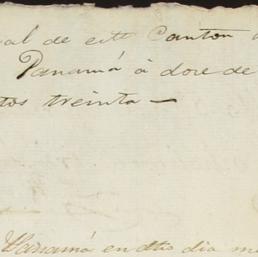 al de este Canton
Panamá à dose de
tos treinta —
Panamá en dho dia m